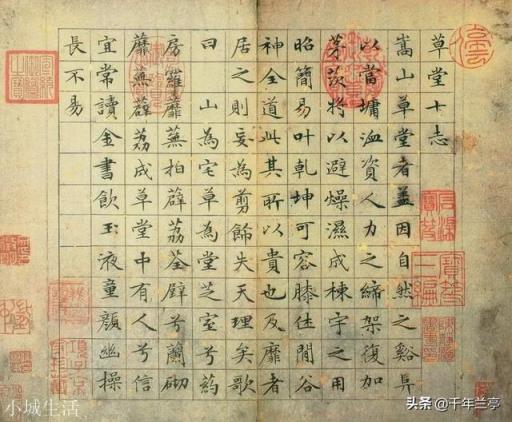 草堂十志
嵩山草堂者蓋因自然之谿阜
以當墉洫資人力之締架復加
茅茨將以避燥濕成棟宇之用
昭簡易叶乾坤可容膝休閒谷
神全道此其所以貴也及靡者
居之則妄為剪飾失天理矣歌
曰 山為宅草為堂芝室兮葯
房羅蘼蕪拍薜荔荃壁兮蘭砌
蘼蕪薜荔成草堂中有人兮信
宜常讀金書飲玉液童顏幽操
長不易
小城生活
头条 @千年兰亭